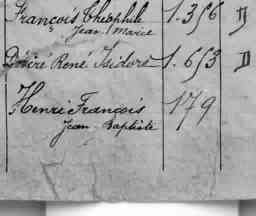 François Théophile 1.356 D
Jean Marie
Désiré René Isidore 1.653 D
Henri François 179
Jean-Baptiste